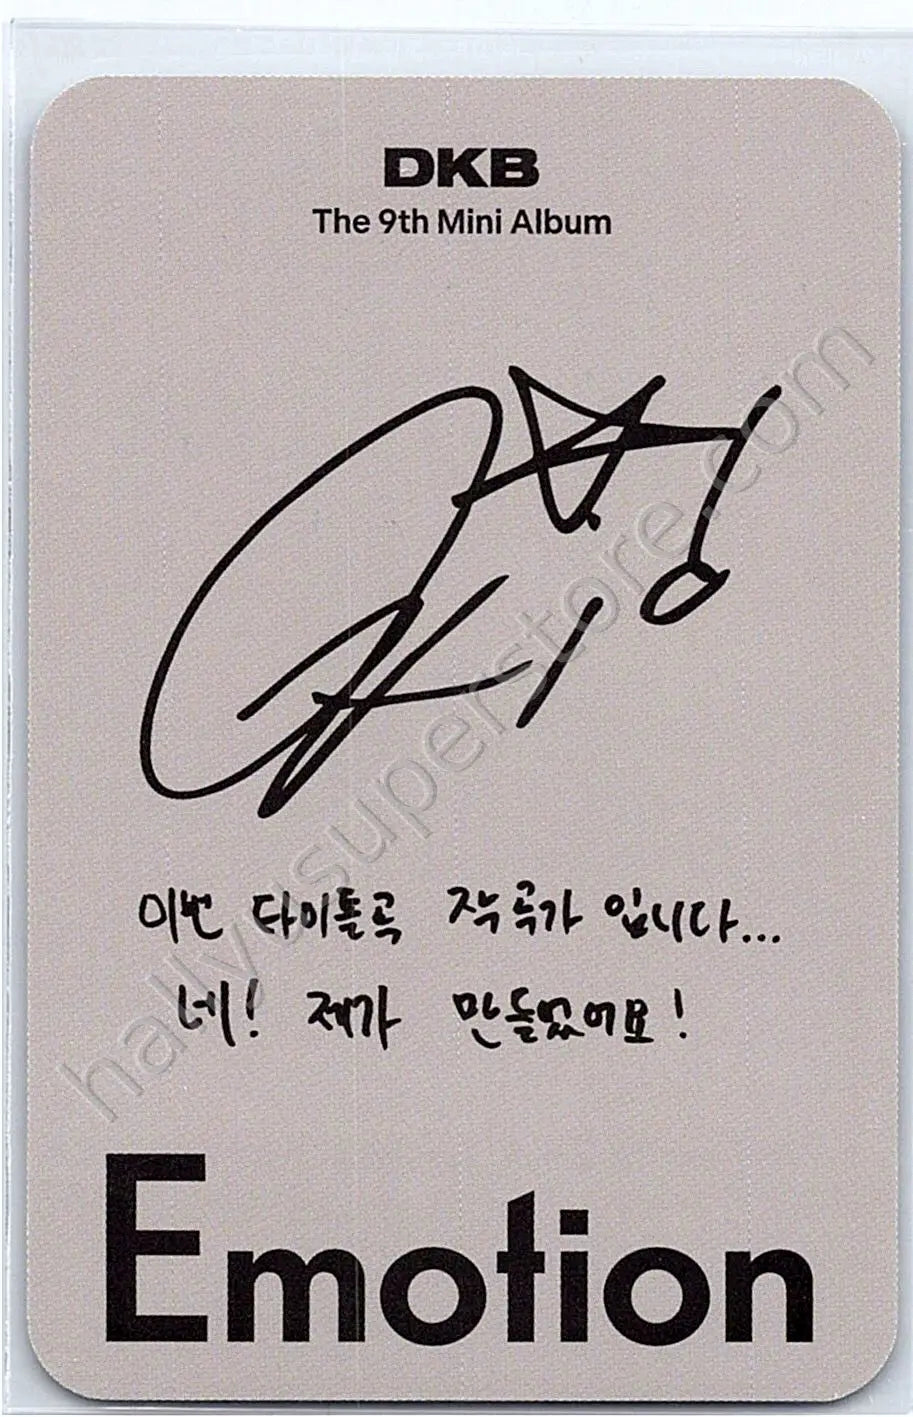 DKB
The 9th Mini Album
이번 타이틀곡 작곡가 입니다...
네! 제가 만들었어요!
Emotion
hallyusuperstore.com